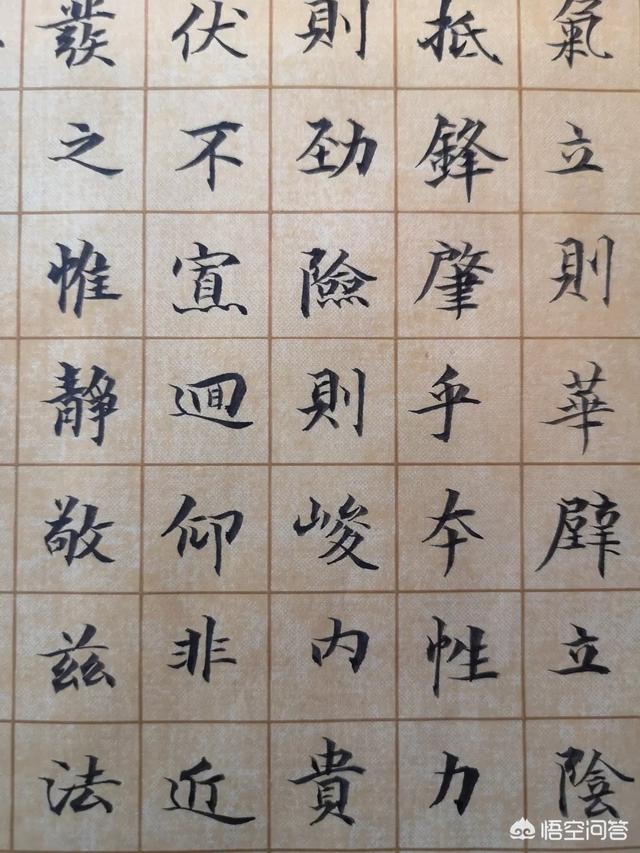 氣立則華壁立陰
抵鋒肇乎本性力
則勁險則峻內貴
伏不寡迴仰非近
發之惟靜敬茲法
悟空问答